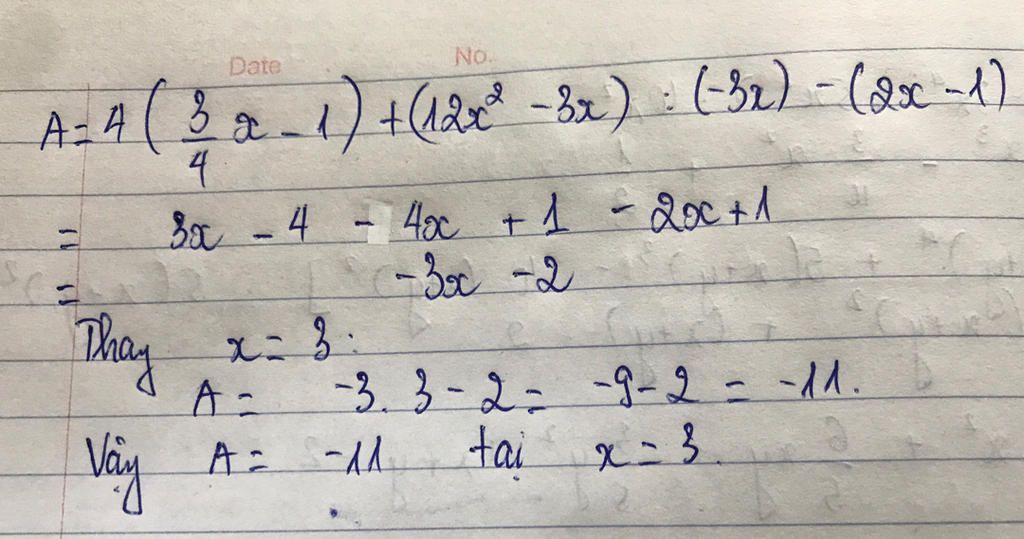 Date No.
A = 4 ( 3/4 x - 1 ) + (12x² - 3x) : (-3x) - (2x - 1)
= 3x - 4 - 4x + 1 - 2x + 1
= -3x - 2
Thay x = 3 :
A = -3. 3 - 2 = -9 - 2 = -11.
Vậy A = -11 tại x = 3.